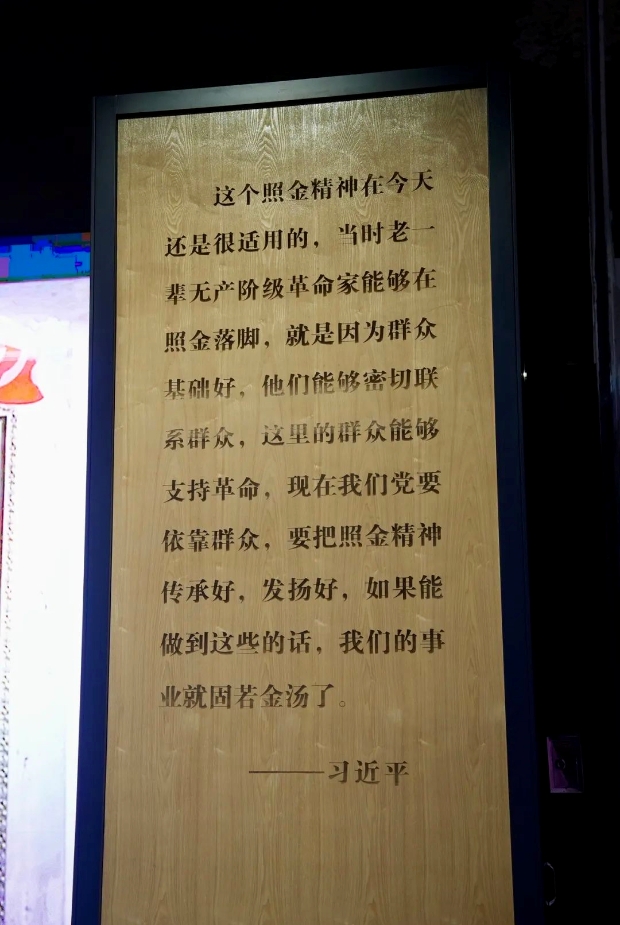 这个照金精神在今天
还是很适用的，当时老一
辈无产阶级革命家能够在
照金落脚，就是因为群众
基础好，他们能够密切联
系群众，这里的群众能够
支持革命，现在我们党要
依靠群众，要把照金精神
传承好，发扬好，如果能
做到这些的话，我们的事
业就固若金汤了。
———习近平